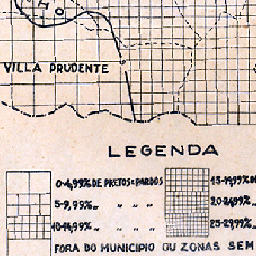 VILLA PRUDENTE
LEGENDA
0-4,99% DE PRETOS E PARDOS
15-19,99% D
5-9,99% " " " "
20-24,99% "
10-14,99% " " " "
25-29,99% "
FORA DO MUNICIPIO OU ZONAS SEM